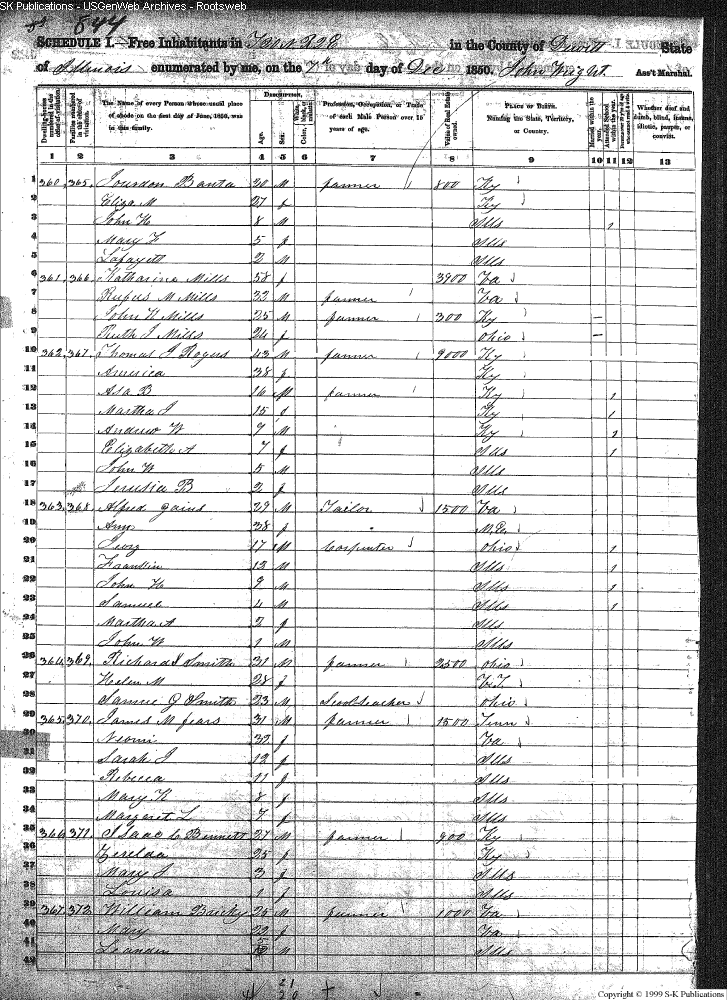 SK Publications - USGenWeb Archives - Rootsweb
844
SCHEDULE I.—Free Inhabitants in in the County of Dewitt State
of Illinois enumerated by me, on the 7th day of Dec 1850. John Wright. Ass't Marshal.
Dwelling-houses numbered in the order of visitation.
Families numbered in the order of visitation.
The Name of every Person whose usual place of abode on the first day of June, 1850, was in this family.
Description.
Age.
Sex.
Color, White, black, or mulatto.
Profession, Occupation, or Trade of each Male Person over 15 years of age.
Value of Real Estate owned.
Place of Birth. Naming the State, Territory, or Country.
Married within the year.
Attended School within the year.
Whether deaf and dumb, blind, insane, idiotic, pauper, or convict.
1 2 3 4 5 6 7 8 9 10 11 12 13
1 360 365 Jourdon Banta 30 M farmer 800 Ky
2 Eliza M 27 f Ky
3 John H 8 M Ills 1
4 Mary F 5 f Ills
5 Lafayett 2 M Ills
6 361 366 Katharine Mills 58 f 3900 Va
7 Rufus M Mills 32 M farmer Va
8 John H Mills 25 M farmer 300 Ky
9 Ruth J Mills 24 f ohio
10 362 367 Thomas J Rogers 43 M farmer 9000 Ky
11 America 38 f Ky
12 Asa B 16 M farmer Ky 1
13 Martha J 15 f Ky 1
14 Andrew W 9 M Ky 1
15 Elizabeth A 7 f Ills 1
16 John W 5 M Ills
17 B 2 f Ills
18 363 368 Alfred Gains 29 M Tailor 1500 Va
19 Amy 38 f
20 17 M Carpenter ohio 1
21 Franklin 12 M Ills 1
22 John H 9 M Ills 1
23 Samuel 4 M Ills 1
24 Martha A 2 f Ills
25 John W 1 M Ills
26 364 369 Richard J Smith 31 M farmer 2500 ohio
27 Helen M 28 f
28 Samuel G Smith 23 M ohio
29 365 370 James M fears 31 M farmer 1500 Tenn
30 Neomi 32 f Va
31 Sarah J 12 f Ills
32 Rebecca 11 f Ills
33 Mary K 8 f Ills
34 Margaret L 7 f Ills
35 366 371 Isaac C Bennett 27 M farmer 900 Ky
36 Zerelda 25 f Ky
37 Mary J 3 f Ills
38 Louisa 1 f Ills
39 367 372 William 25 M farmer 1000 Va
40 Mary 22 f Va
41 Leander M Ills
42
Copyright © 1999 S-K Publications